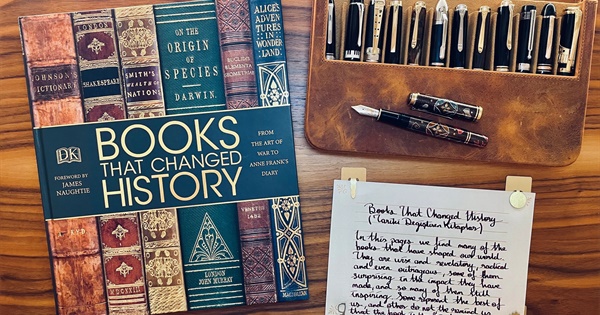 JOHNSON'S
DICTIONARY
LONDON
SHAKESPEARE
SMITH'S
WEALTH OF
NATIONS
ON THE
ORIGIN
OF
SPECIES
DARWIN.
EUCLID'S
ELEMENTA
GEOMETRIAE
ALICE'S
ADVEN
TURES
IN
WONDER
LAND.
DK
FOREWORD BY
JAMES
NAUGHTIE
BOOKS
THAT CHANGED
HISTORY
FROM
THE ART OF
WAR TO
ANNE FRANK'S
DIARY
LONDON
JOHN MURRAY
VENETIIS
1482
MACMILLAN
Books That Changed History
(Tarihi Değiştiren Kitaplar)
In this pages we find many of the
books that have shaped our world.
They are wise and revelatory, radical
and even outrageous, some of them
surprising in the impact they have
made, and so many of them still
inspiring. Some represent the best of
us, and others do not
that the book